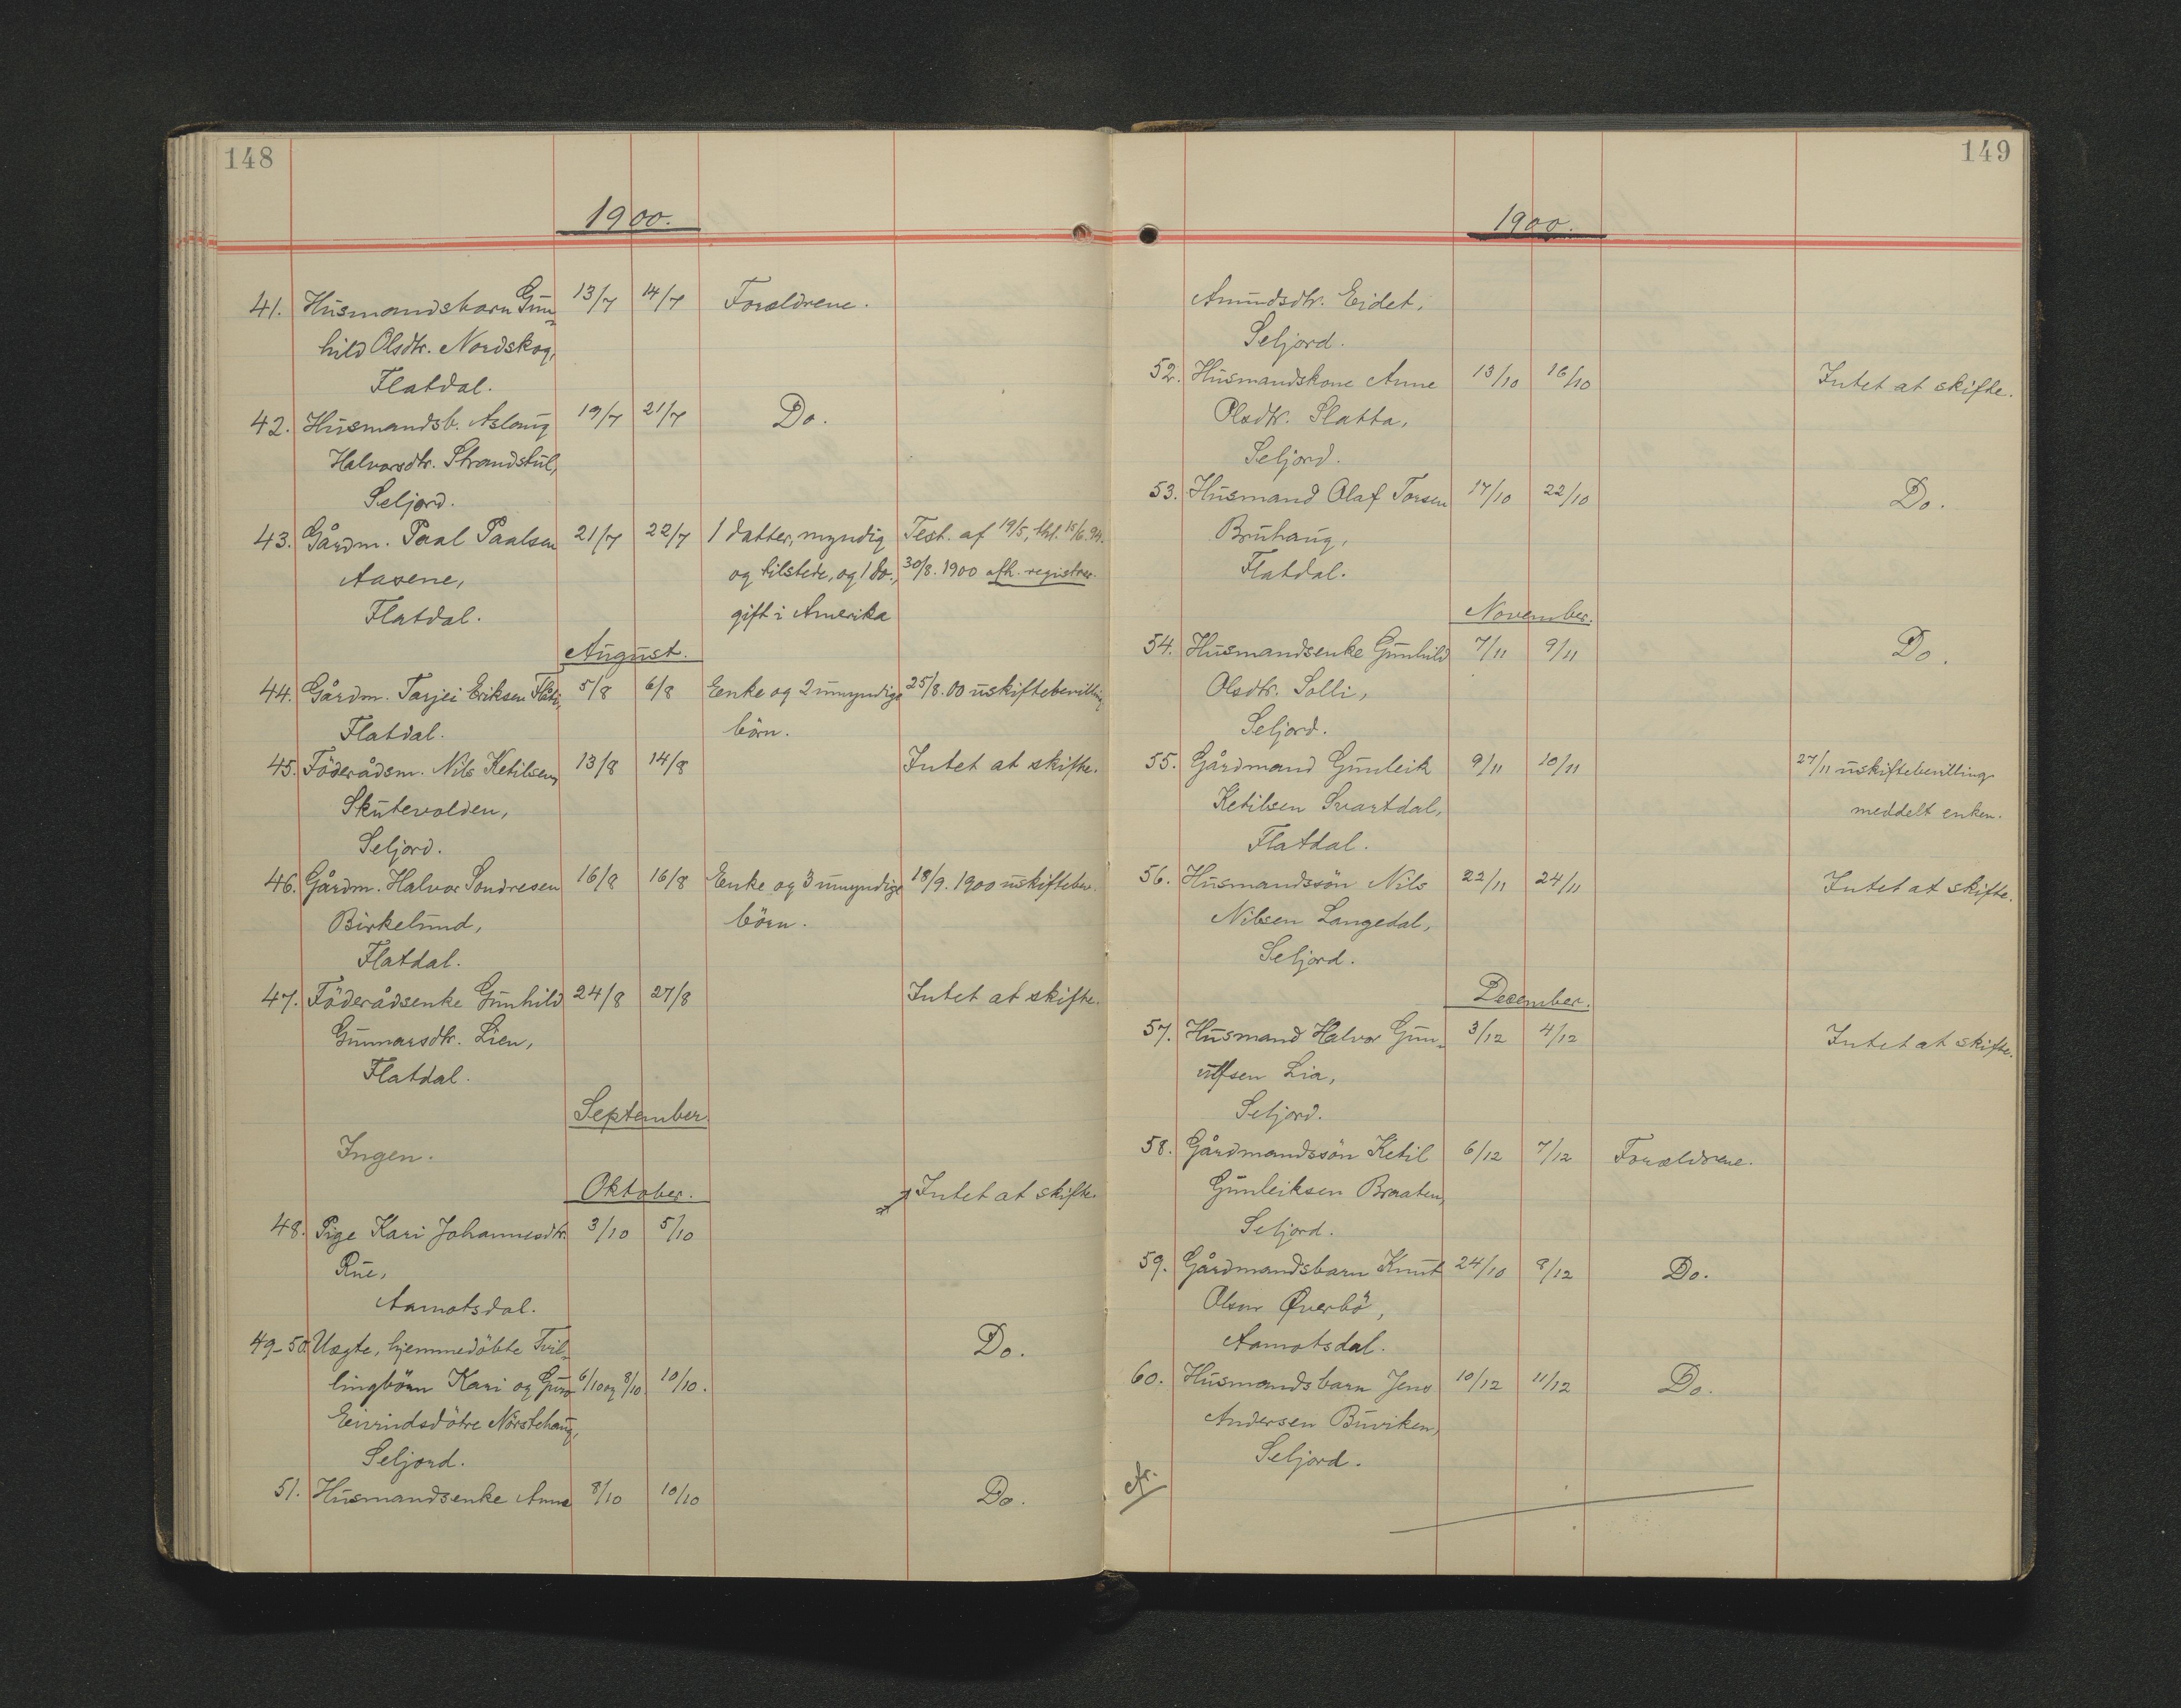 148
1900.
41. Husmandsbarn Gun- 13/7 14/7 Forældrene.
hild Olsdtr. Nordskog,
Flatdal.
42. Husmandsb. Aslaug 19/7 21/7 Do.
Halvorsdtr. Strandstul,
Seljord.
43. Gårdm. Paal Paalsen 21/7 22/7 1 datter, myndig Test. af 19/5, thl. 15/6. 94.
Aasene, og tilstede, og 1 do., 30/8. 1900 afh. registrer.
Flatdal. gift i Amerika
August.
44. Gårdm. Tarjei Eriksen 5/8 6/8 Enke og 2 umyndige 25/8. 00 uskiftebevilling
Flatdal. börn.
45. Föderådsm. Nils Ketilsen 13/8 14/8 Intet at skifte.
Skutevolden,
Seljord.
46. Gårdm. Halvor Sondresen 16/8 16/8 Enke og 3 umyndige 18/9. 1900 uskiftebev.
Birkelund, börn.
Flatdal.
47. Föderådsenke Gunhild 24/8 27/8 Intet at skifte.
Gunnarsdtr. Lien,
Flatdal.
September.
Ingen.
Oktober. Intet at skifte.
48. Pige Kari Johannesdtr. 3/10 5/10
Rue,
Aamotsdal.
49-50. Uægte, hjemmedöbte Tvil- Do.
lingbörn Kari og Guro 6/10 og 8/10 10/10.
Eivindsdötre Nörstehaug,
Seljord.
51. Husmandsenke Anne 8/10 10/10 Do.
149
1900.
Amundsdtr. Eidet,
Seljord.
52. Husmandskone Anne 13/10 16/10 Intet at skifte.
Olsdtr. Slatta,
Seljord.
53. Husmand Olaf Torsen 17/10 22/10 Do.
Bruhaug,
Flatdal.
November.
54. Husmandsenke Gunhild 7/11 9/11 Do.
Olsdtr. Solli,
Seljord.
55. Gårdmand Gunleik 9/11 10/11 27/11 uskiftebevilling
Ketilsen Svartdal, meddelt enken.
Flatdal.
56. Husmandssön Nils 22/11 24/11 Intet at skifte.
Nilsen Langedal,
Seljord.
Desember.
57. Husmand Halvor Gun- 3/12 4/12 Intet at skifte.
ulfsen Lia,
Seljord.
58. Gårdmandssön Ketil 6/12 7/12 Forældrene.
Gunleiksen Braaten,
Seljord.
59. Gårdmandsbarn Knut 24/10 8/12 Do.
Olsen Øverbö,
Aamotsdal.
60. Husmandsbarn Jens 10/12 11/12 Do.
Andersen Buviken,
Seljord.